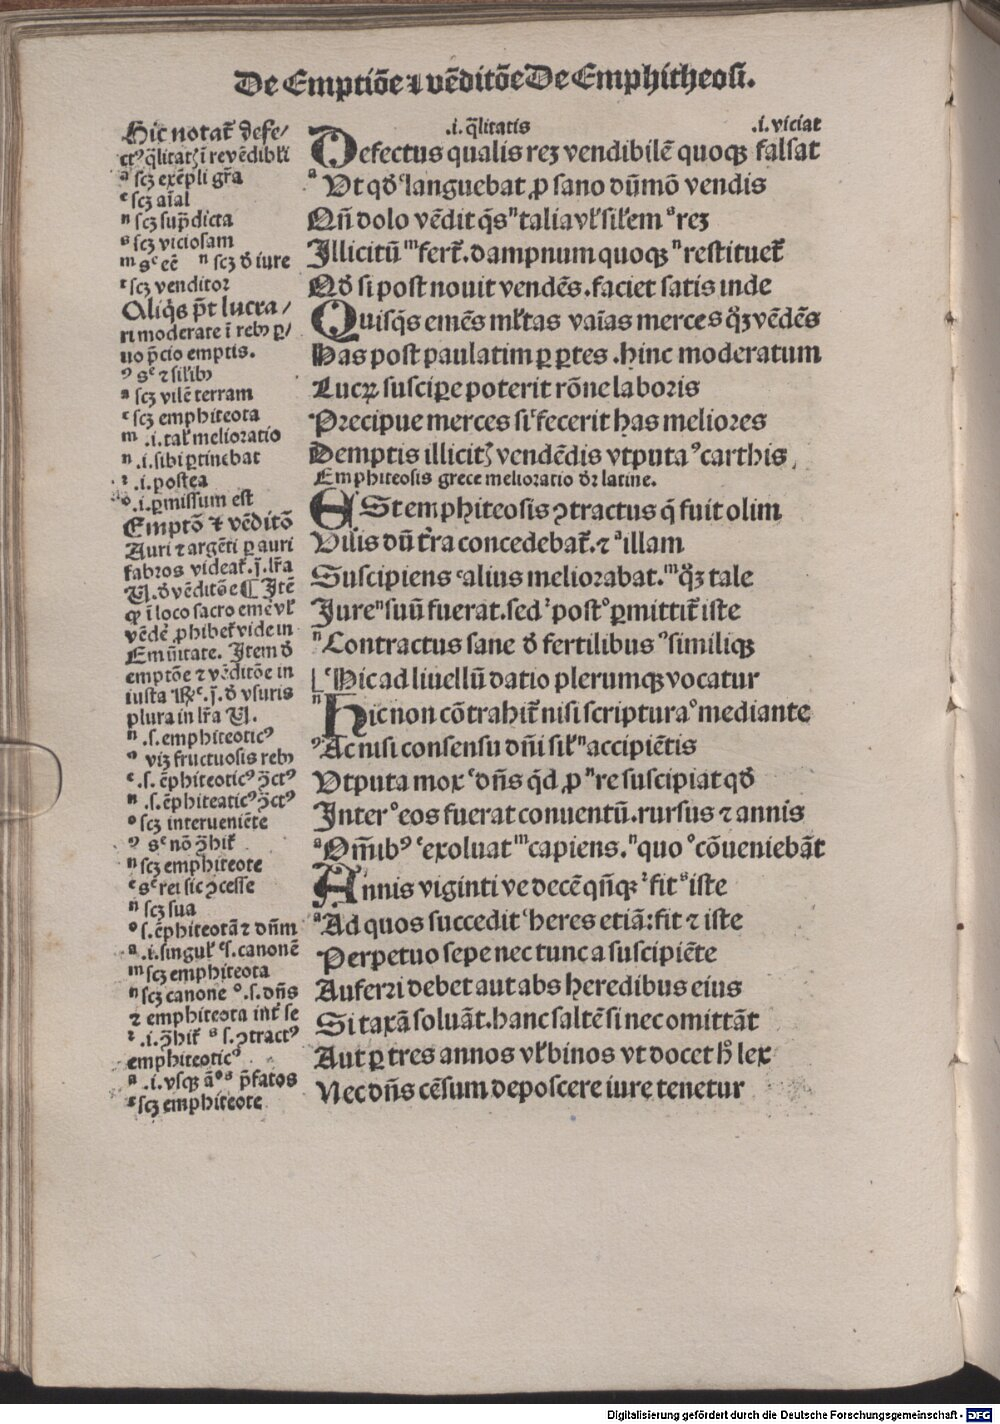 De Emptiōe ⁊ vēditōe De Emphitheosi.
Hic notat̄ defe/
ctꝰ q̄litatꝭ ī re vēdibl̄i
ᵃ scꝫ exēpli gr̄a
ᵉ scꝫ aīal
ⁿ scꝫ sup̄dicta
ˢ scꝫ viciosam
ᵐ sᶜ eē ⁿ scꝫ d̄ iure
ᵉ scꝫ venditor
Aliq̄s p̄t lucra /
ri moderate ī rebꝰ ꝑ/
uo p̄cio emptis.
ꝰ sᶜ ⁊ sil̄ibꝰ
ᵃ scꝫ vilē terram
ᶜ scꝫ emphiteota
ᵐ .i. tal̄ melioratio
ⁿ .i. sibi ꝑtinebat
ᶻ .i. postea
ᵒ .i. ꝑmissum est
Emptō ⁊ vēditō
Auri ⁊ argēti ꝑ auri
fabros videat̄. j̄. lr̄a
V. d̄ vēditōe ¶ Itē
ꝙ ī loco sacro emē vl̄
vēdē ꝓhibet̄ vide in
Emūitate. Item d̄
emptōe ⁊ vēditōe in
iusta Rᶜ. j̄. d̄ vsuris
plura in lr̄a V.
ⁿ .s. emphiteoticꝰ
ꝰ viꝫ fructuosis rebꝰ
ᵉ .s. ēphiteoticꝰ ꝯ̄ctꝰ
ⁿ .s. ēphiteaticꝰ ꝯ̄ctꝰ
ᵒ scꝫ interueniēte
ꝰ sᶜ nō ꝯ̄hit̄
ⁿ scꝫ emphiteote
ᵉ sᶜ rei sic ꝯcesse
ⁿ scꝫ sua
ᵒ .s. ēphiteotā ⁊ dn̄m
ᵃ .i. singul̄ ᶜ .s. canonē
ᵐ scꝫ emphiteota
ⁿ scꝫ canone ᵒ .s. dn̄s
⁊ emphiteota int̄ se
ᶻ .i. ꝯ̄hit̄ ˢ .s. ꝯtractꝰ
emphiteoticꝰ
ᵃ .i. vsqꝫ āᵒˢ p̄fatos
ᵉ scꝫ emphiteote
.i. q̄litatis .i. viciat
Defectus qualis reꝫ vendibilē quoqꝫ falsat
ᵃ Vt qd̄ ᶜlanguebat ꝓ sano dūmō vendis
Qn̄ dolo vēdit q̄s ⁿtalia vl̄ sil̄em ˢrez
Illicitū ᵐfert̄. dampnum quoqꝫ ⁿrestituet̄
Qd̄ si post nouit vendēs. faciet satis inde
Quisq̄s emēs ml̄tas vaīas merces qꝫ̄ vēdēs
Has post paulatim ꝑ ꝑtes .hinc moderatum
Lucꝝ suscipe poterit rōne laboris
Precipue merces si ᶜfecerit has meliores
Demptis illicitꝭ vendēdis vtputa ꝰcarthis
Emphiteosis grece melioratio dr̄ latine.
ESt emphiteosis ꝯtractus q̄ fuit olim
Vilis dū tr̄a concedebat̄. ⁊ ᵃillam
Suscipiens ᶜalius meliorabat. ᵐqꝫ̄ tale
Iure ⁿsuū fuerat. sed ᶻpost ᵒꝑmittit̄ iste
ⁿContractus sane d̄ fertilibus ꝰsimiliqꝫ
ᶜHic ad liuellū datio plerumqꝫ vocatur
ⁿHic non cōtrahit̄ nisi scriptura ᵒmediante
ꝰAc nisi consensu dn̄i sil̄ ⁿaccipiētis
Vtputa mox ᶜdn̄s qd̄ ꝓ ⁿre suscipiat qd̄
Inter ᵒeos fuerat conuentū. rursus ⁊ annis
ᵃOm̄ibꝰ ᶜexoluat ᵐcapiens. ⁿquo ᵒcōueniebāt
Annis viginti ve decē qn̄qꝫ ᶻfit ˢiste
ᵃAd quos succedit ᶜheres etiā: fit ⁊ iste
Perpetuo sepe nec tunc a suscipiēte
Auferri debet aut abs heredibus eius
Si taxā soluāt. hanc saltē si nec omittāt
Aut ꝑ tres annos vl̄ binos vt docet h̄ lex
Nec dn̄s cēsum deposcere iure tenetur
Digitalisierung gefördert durch die Deutsche Forschungsgemeinschaft - DFG